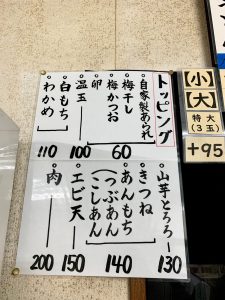 トッピング
自家製あられ
梅干し
梅かつお
60
卵
温玉
100
白もち
わかめ
110
山芋とろろ
130
きつね
あんもち
(つぶあん
こしあん)
140
エビ天
150
肉
200
小
大
特大
(3玉)
+95